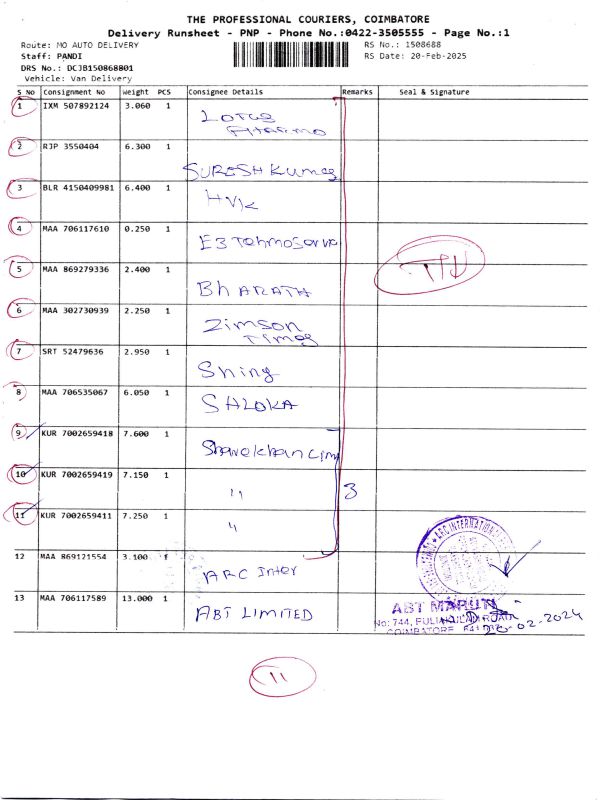 THE PROFESSIONAL COURIERS, COIMBATORE
Delivery Runsheet - PNP - Phone No.:0422-3505555 - Page No.:1
Route: MO AUTO DELIVERY RS No.: 1508688
Staff: PANDI RS Date: 20-Feb-2025
DRS No.: DCJB150868801
Vehicle: Van Delivery
S No Consignment No Weight PCS Consignee Details Remarks Seal & Signature
1 IXM 507892124 3.060 1
LOTUS
PHARMO
2 RJP 3550404 6.300 1
SURESH Kumar
3 BLR 4150409981 6.400 1
HVK
4 MAA 706117610 0.250 1
5 MAA 869279336 2.400 1
BhARATH
6 MAA 302730939 2.250 1
Zimson
Times
7 SRT 52479636 2.950 1
Shing
8 MAA 706535067 6.050 1
SHLOKA
9 KUR 7002659418 7.600 1
Sharekhan Lim
10 KUR 7002659419 7.150 1
" 3
11 KUR 7002659411 7.250 1
"
12 MAA 869121554 3.100 1
ARC Inter
13 MAA 706117589 13.000 1
ABT LIMITED
ABT MARUTI
No: 744, PULIAKULAM ROAD
COIMBATORE
20-02-2024
11